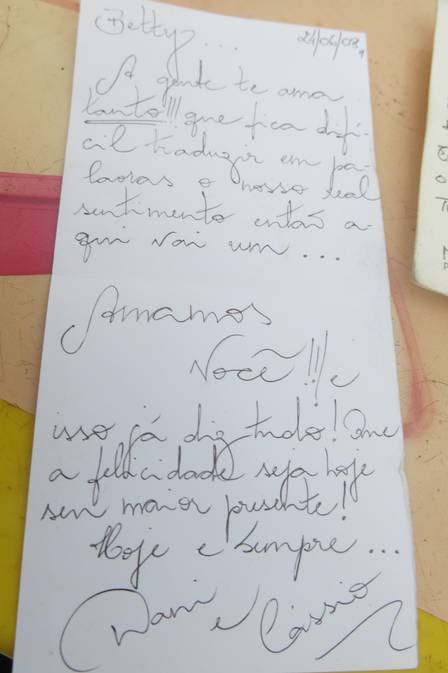 Betty...
24/06/03
A gente te ama
tanto!!! que fica difí-
cil traduzir em pa-
lavras o nosso real
sentimento então a-
qui vai um ...
Amamos
Você!!! e
isso já diz tudo! Que
a felicidade seja hoje
seu maior presente!
Hoje e Sempre...
Dani e Cássio